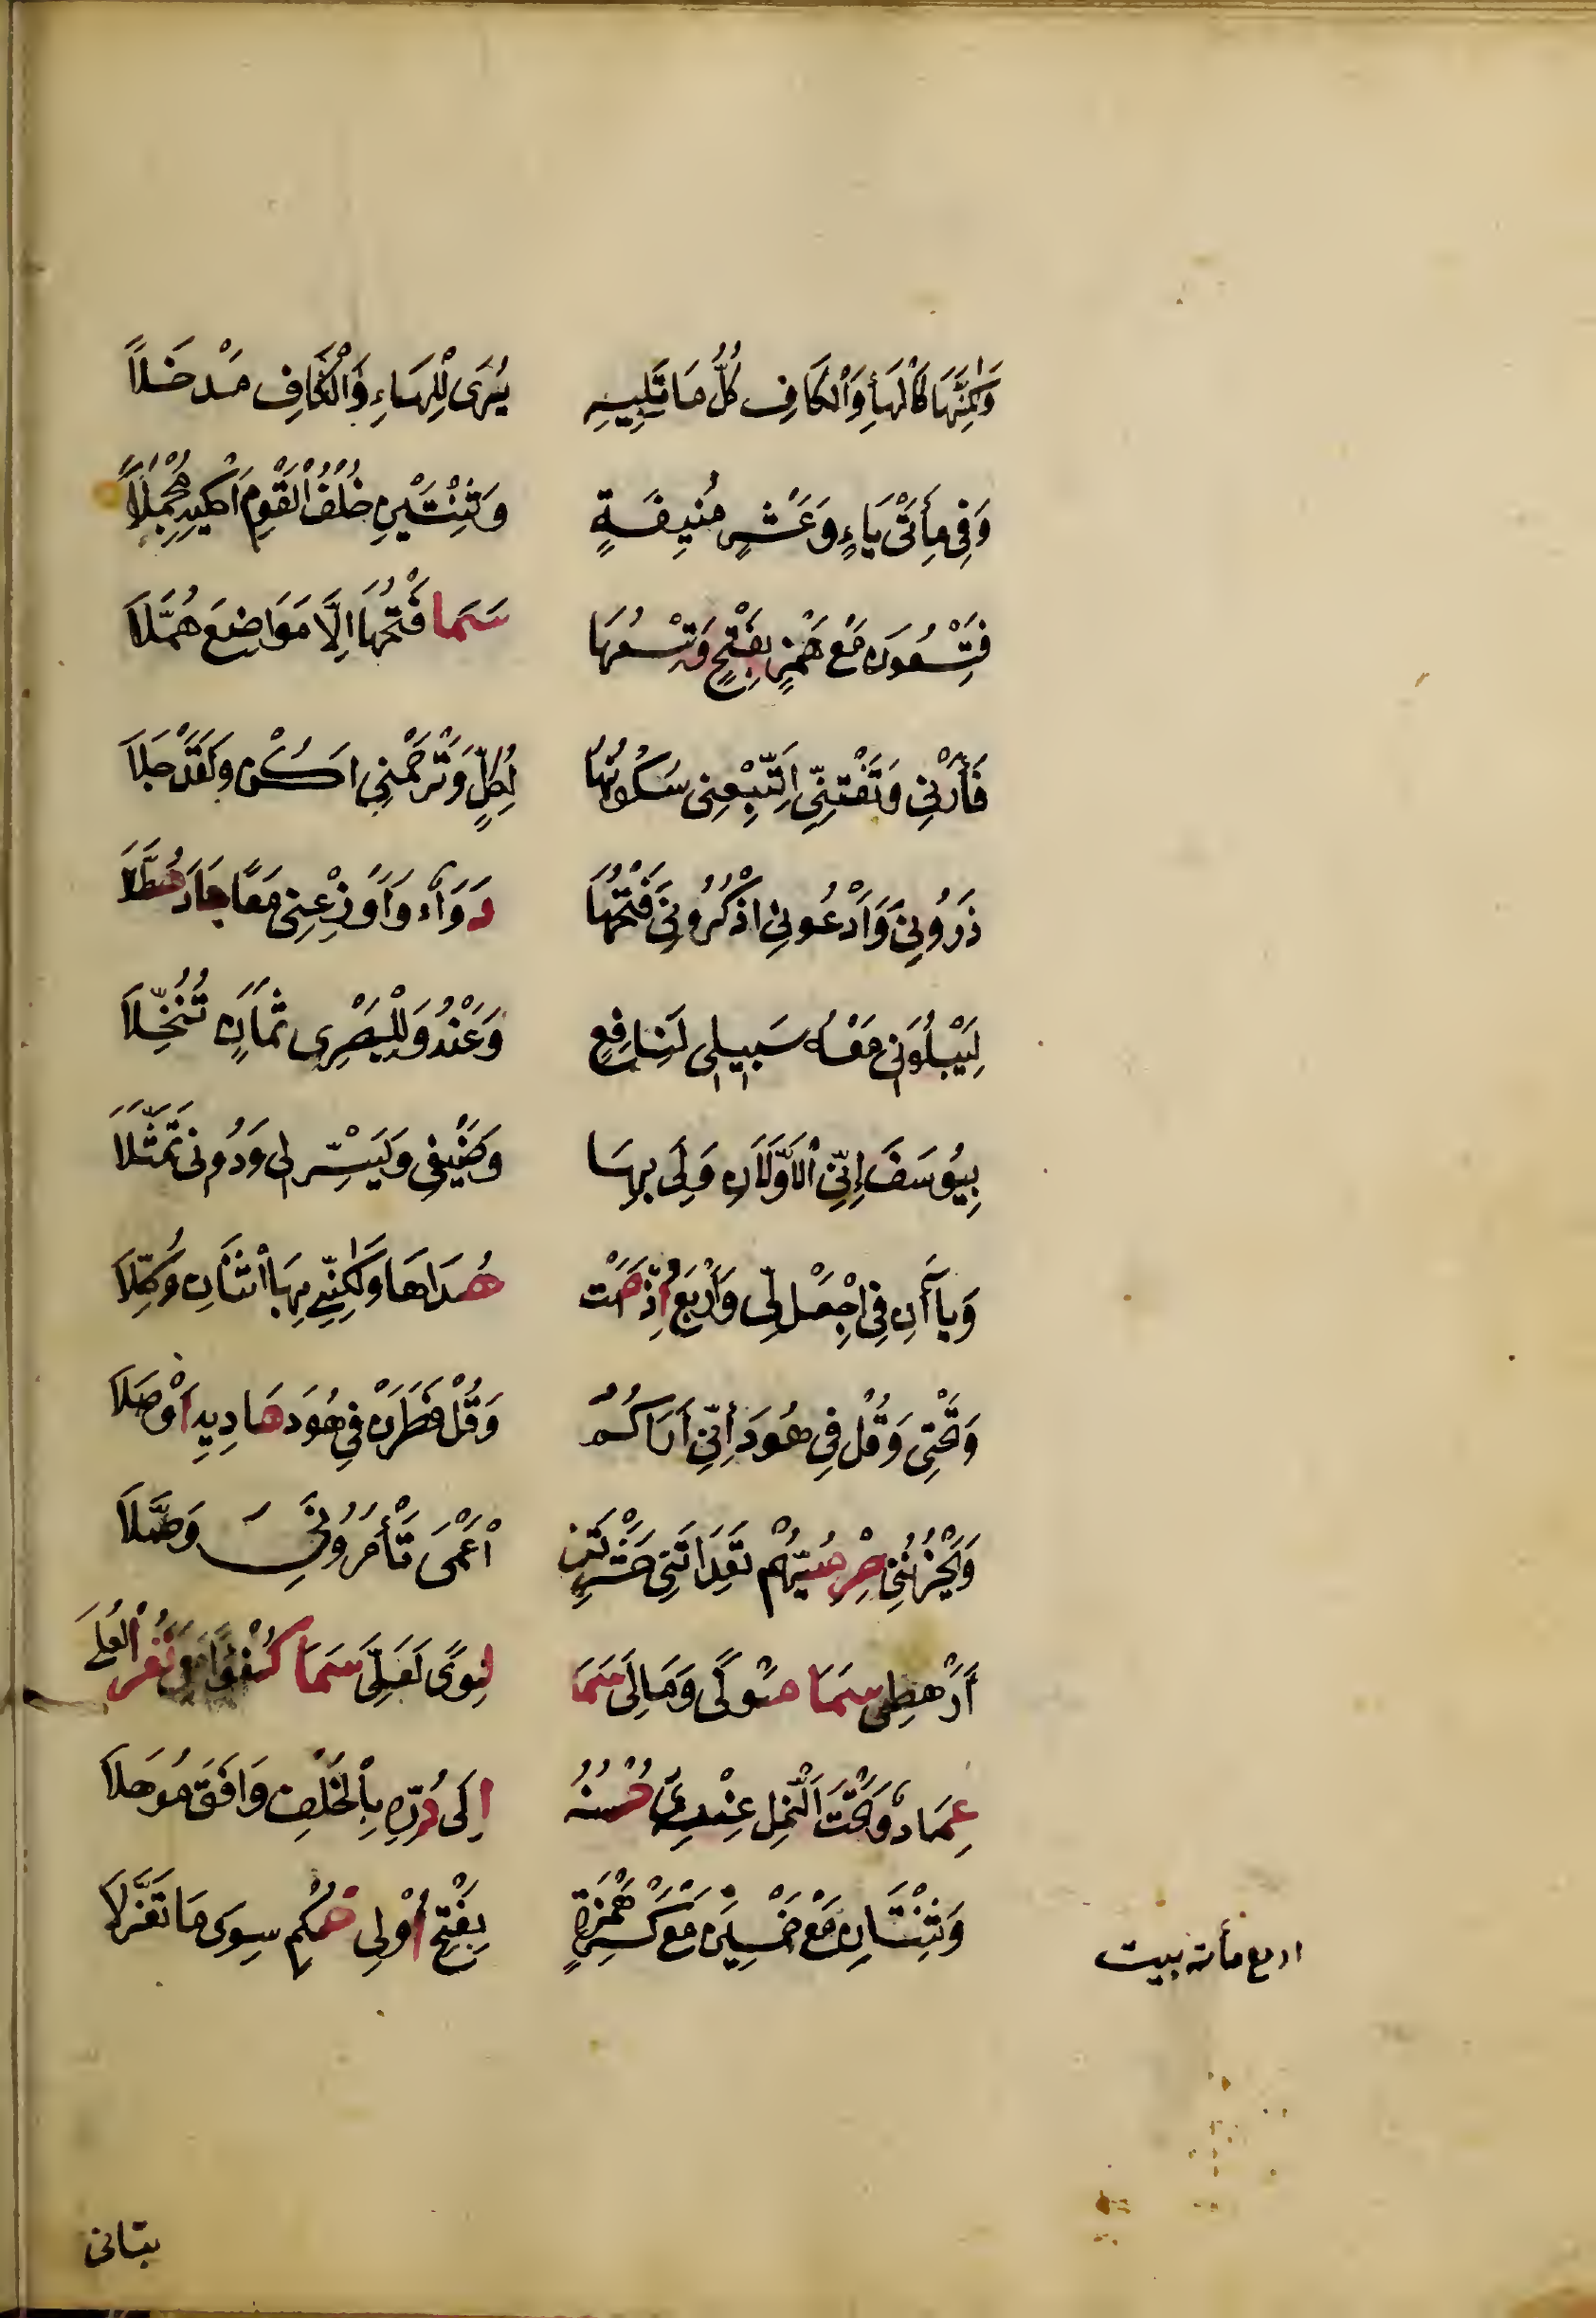 وَلٰكِنَّهَا كَالْهَاءِ وَالْكَافِ كُلُّ مَا تَلِيهِ يُرَى لِلْهَاءِ وَالْكَافِ مَدْخَلاَ
وَفِي مِأَتَيْ يَاءٍ وَعَشْرٍ مُنِيفَةٍ وَثِنْتَيْنِ خُلْفُ الْقَوْمِ أَحْكِيهِ مُجْمَلاَ
فَتِسْعُونَ مَعْ هَمْزٍ بِفَتْحٍ وَتِسْعُهَا سَمَا فَتْحُهَا اِلَّا مَوَاضِعَ هُمَّلاَ
فَأَرْنِي وَتَفْتِنِّي اتَّبِعْنِي سُكُونُهَا لِكُلٍّ وَتَرْحَمْنِي اَكُنْ وَلَقَدْ جَلاَ
ذَرُونِيَ وَادْعُونِي اذْكُرُونِيَ فَتْحُهَا دَوَآء وَاَوْزِعْنِي مَعًا جَادَ هُطَّلاَ
لِيَبْلُوَنِي مَعْهُ سَبِيلِي لِنَافِعٍ وَعَنْهُ وَلِلْبَصْرِي ثَمَانٍ تُنُخِّلاَ
بِيُوسَفَ إِنِّي الاَوَّلاَنِ وَلِي بِهَا وَضَيْفِي وَيَسِّرْ لِي وَدُونِي تَمَثَّلاَ
وَيَاآنِ فِي اجْعَلْ لِي وَأَرْبَعٌ اِذْ حَمَتْ هُدَاهَا وَلٰكِنِّي بِهَا اثْنَانِ وُكِّلاَ
وَتَحْتِي وَقُلْ فِي هُودَ إِنِّي اَرَاكُمُ وَقُلْ فَطَرَنْ فِي هُودَ هَادِيهِ اَوْصَلاَ
وَيَحْزُنُنِي حِرْمِيُّهُمْ تَعِدَانِنِي حَشَرْتَنِي اَعْمَى تَأْمُرُونِيَ وَصَّلاَ
أَرَهْطِي سَمَا مَوْلًى وَمَالِي سَمَا لِوًى لَعَلِّي سَمَا كُفْؤًا مَعِي نَفَرُ الْعُلَى
عِمَادٌ وَتَحْتَ النَّمْلِ عِنْدِيَ حُسْنُهُ اِلَى دُرِّهِ بِالْخُلْفِ وَافَقَ مُوهَلاَ
وَثِنْتَانِ مَعْ خَمْسِينَ مَعْ كَسْرِ هَمْزَةٍ بِفَتْحِ أُوْلِي حُكْمٍ سِوَى مَا تَعَزَّلاَ
اربع مأته بيت
بناتى